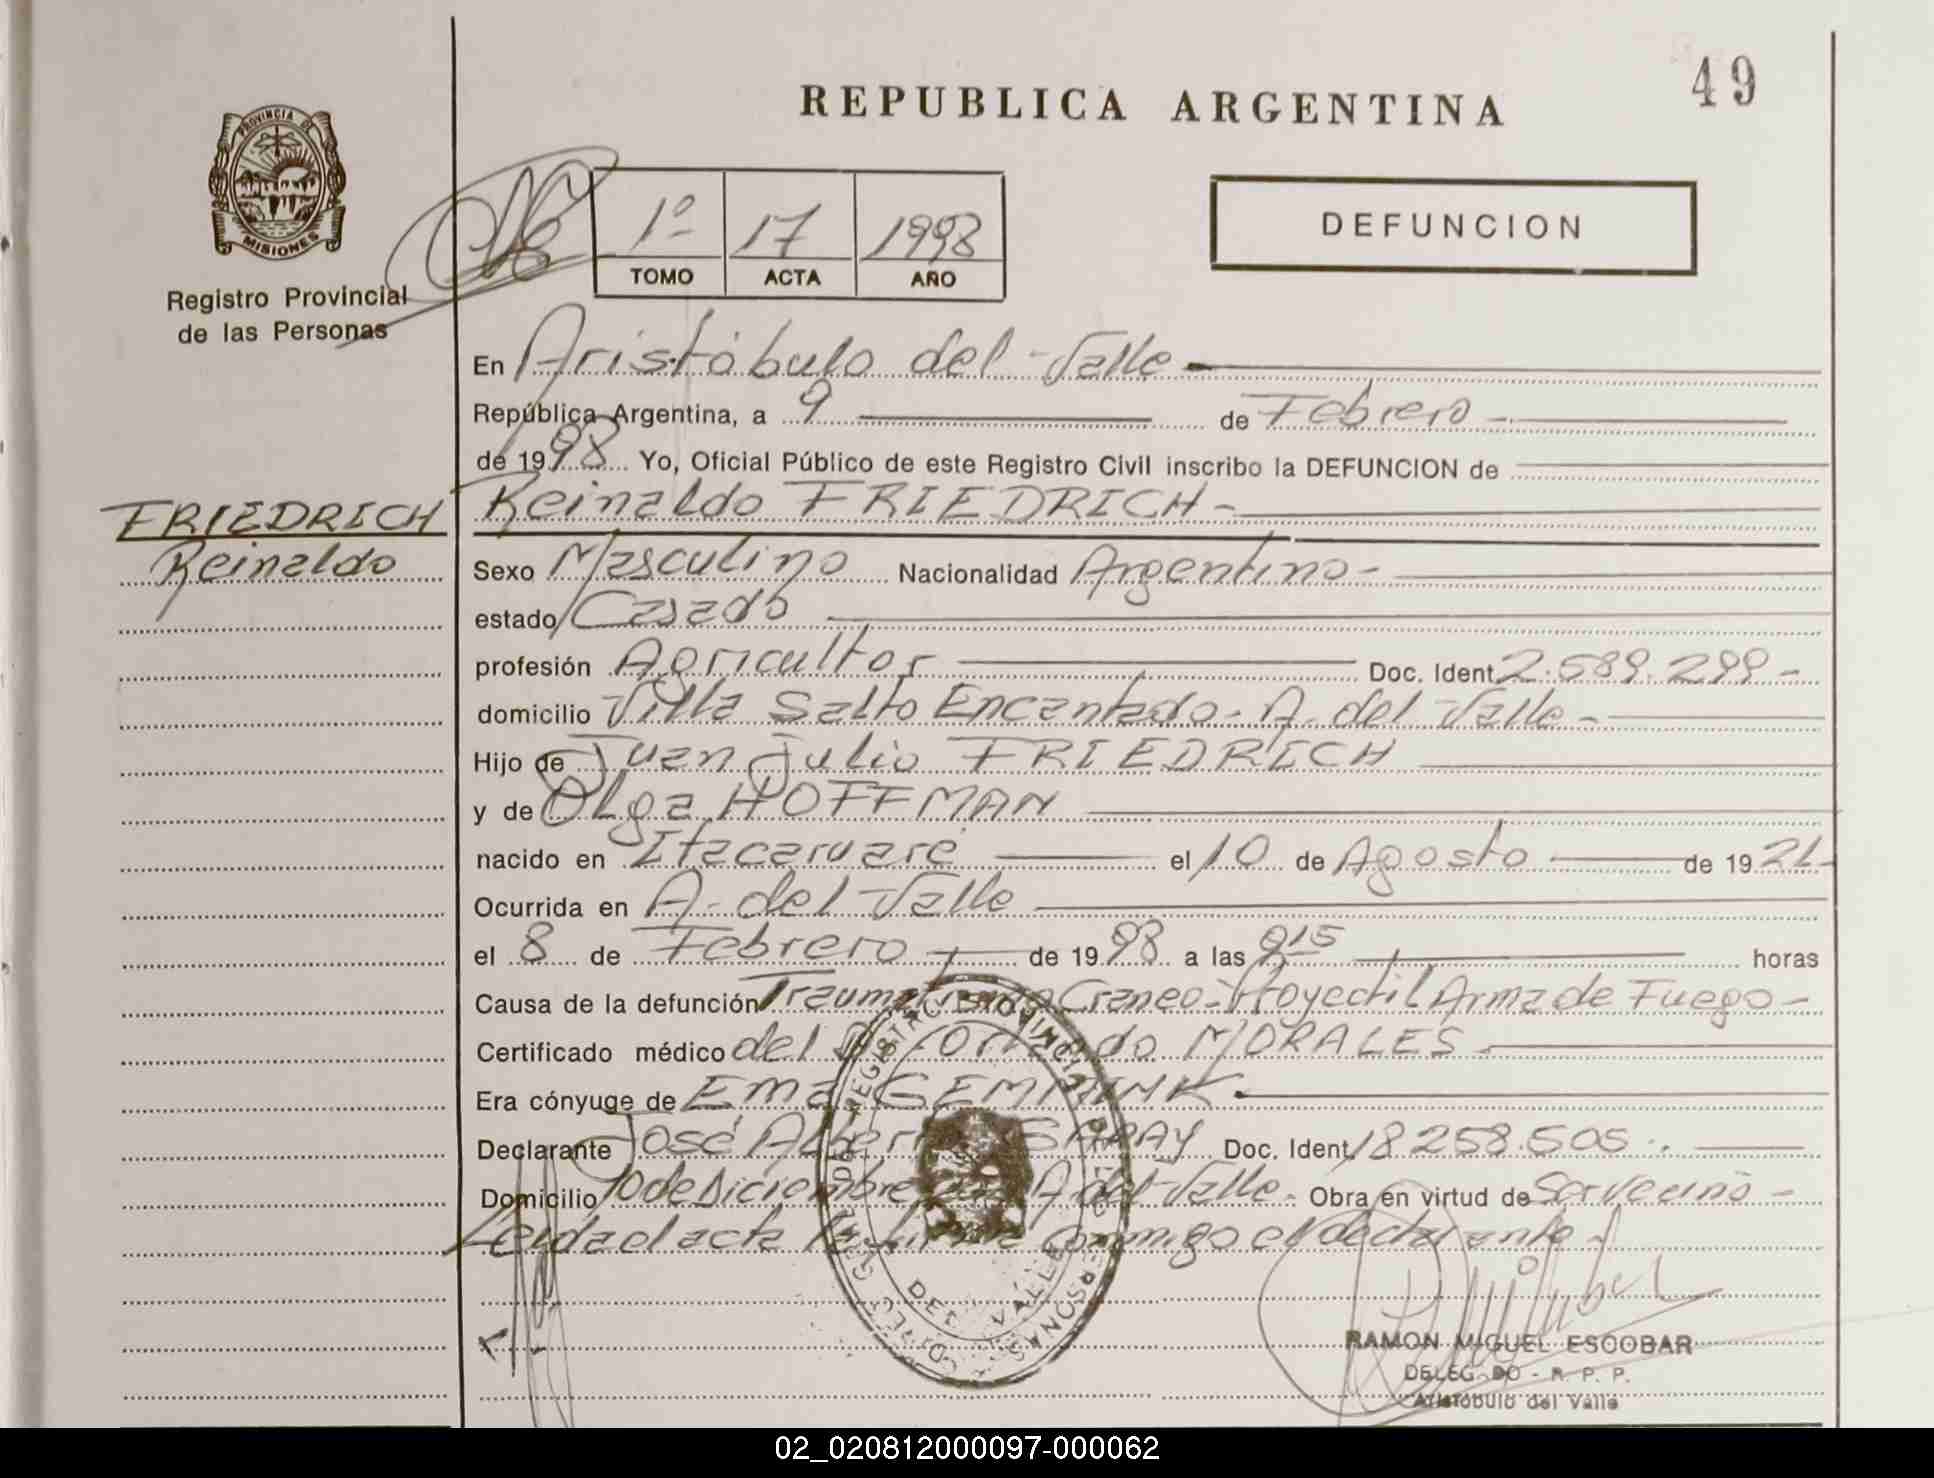 49
REPUBLICA ARGENTINA
PROVINCIA DE
MISIONES
Registro Provincial
de las Personas
1º 17 1998
TOMO ACTA AÑO
DEFUNCION
En Aristóbulo del Valle
República Argentina, a 9 de Febrero
de 1998 Yo, Oficial Público de este Registro Civil inscribo la DEFUNCION de
FRIEDRICH
Reinaldo
Reinaldo FRIEDRICH
Sexo Masculino Nacionalidad Argentino
estado Casado
profesión Agricultor Doc. Ident. 2.589.299
domicilio Villa Salto Encantado - A. del Valle
Hijo de Juan Julio FRIEDRICH
y de Olga HOFFMAN
nacido en Itacaruaré el 10 de Agosto de 1921
Ocurrida en A. del Valle
el 8 de Febrero de 1998 a las 915 horas
Causa de la defunción Craneo - Proyectil Arma de Fuego
Certificado médico del MORALES
Era cónyuge de Ema
Declarante José Doc. Ident. 18.258.505
Domicilio 10 de Diciembre A. del Valle Obra en virtud de
Leida el acta conmigo el declarante
DEL VALLE
RAMON MIGUEL ESCOBAR
DELEGADO - R. P. P.
Aristóbulo del Valle
02_020812000097-000062